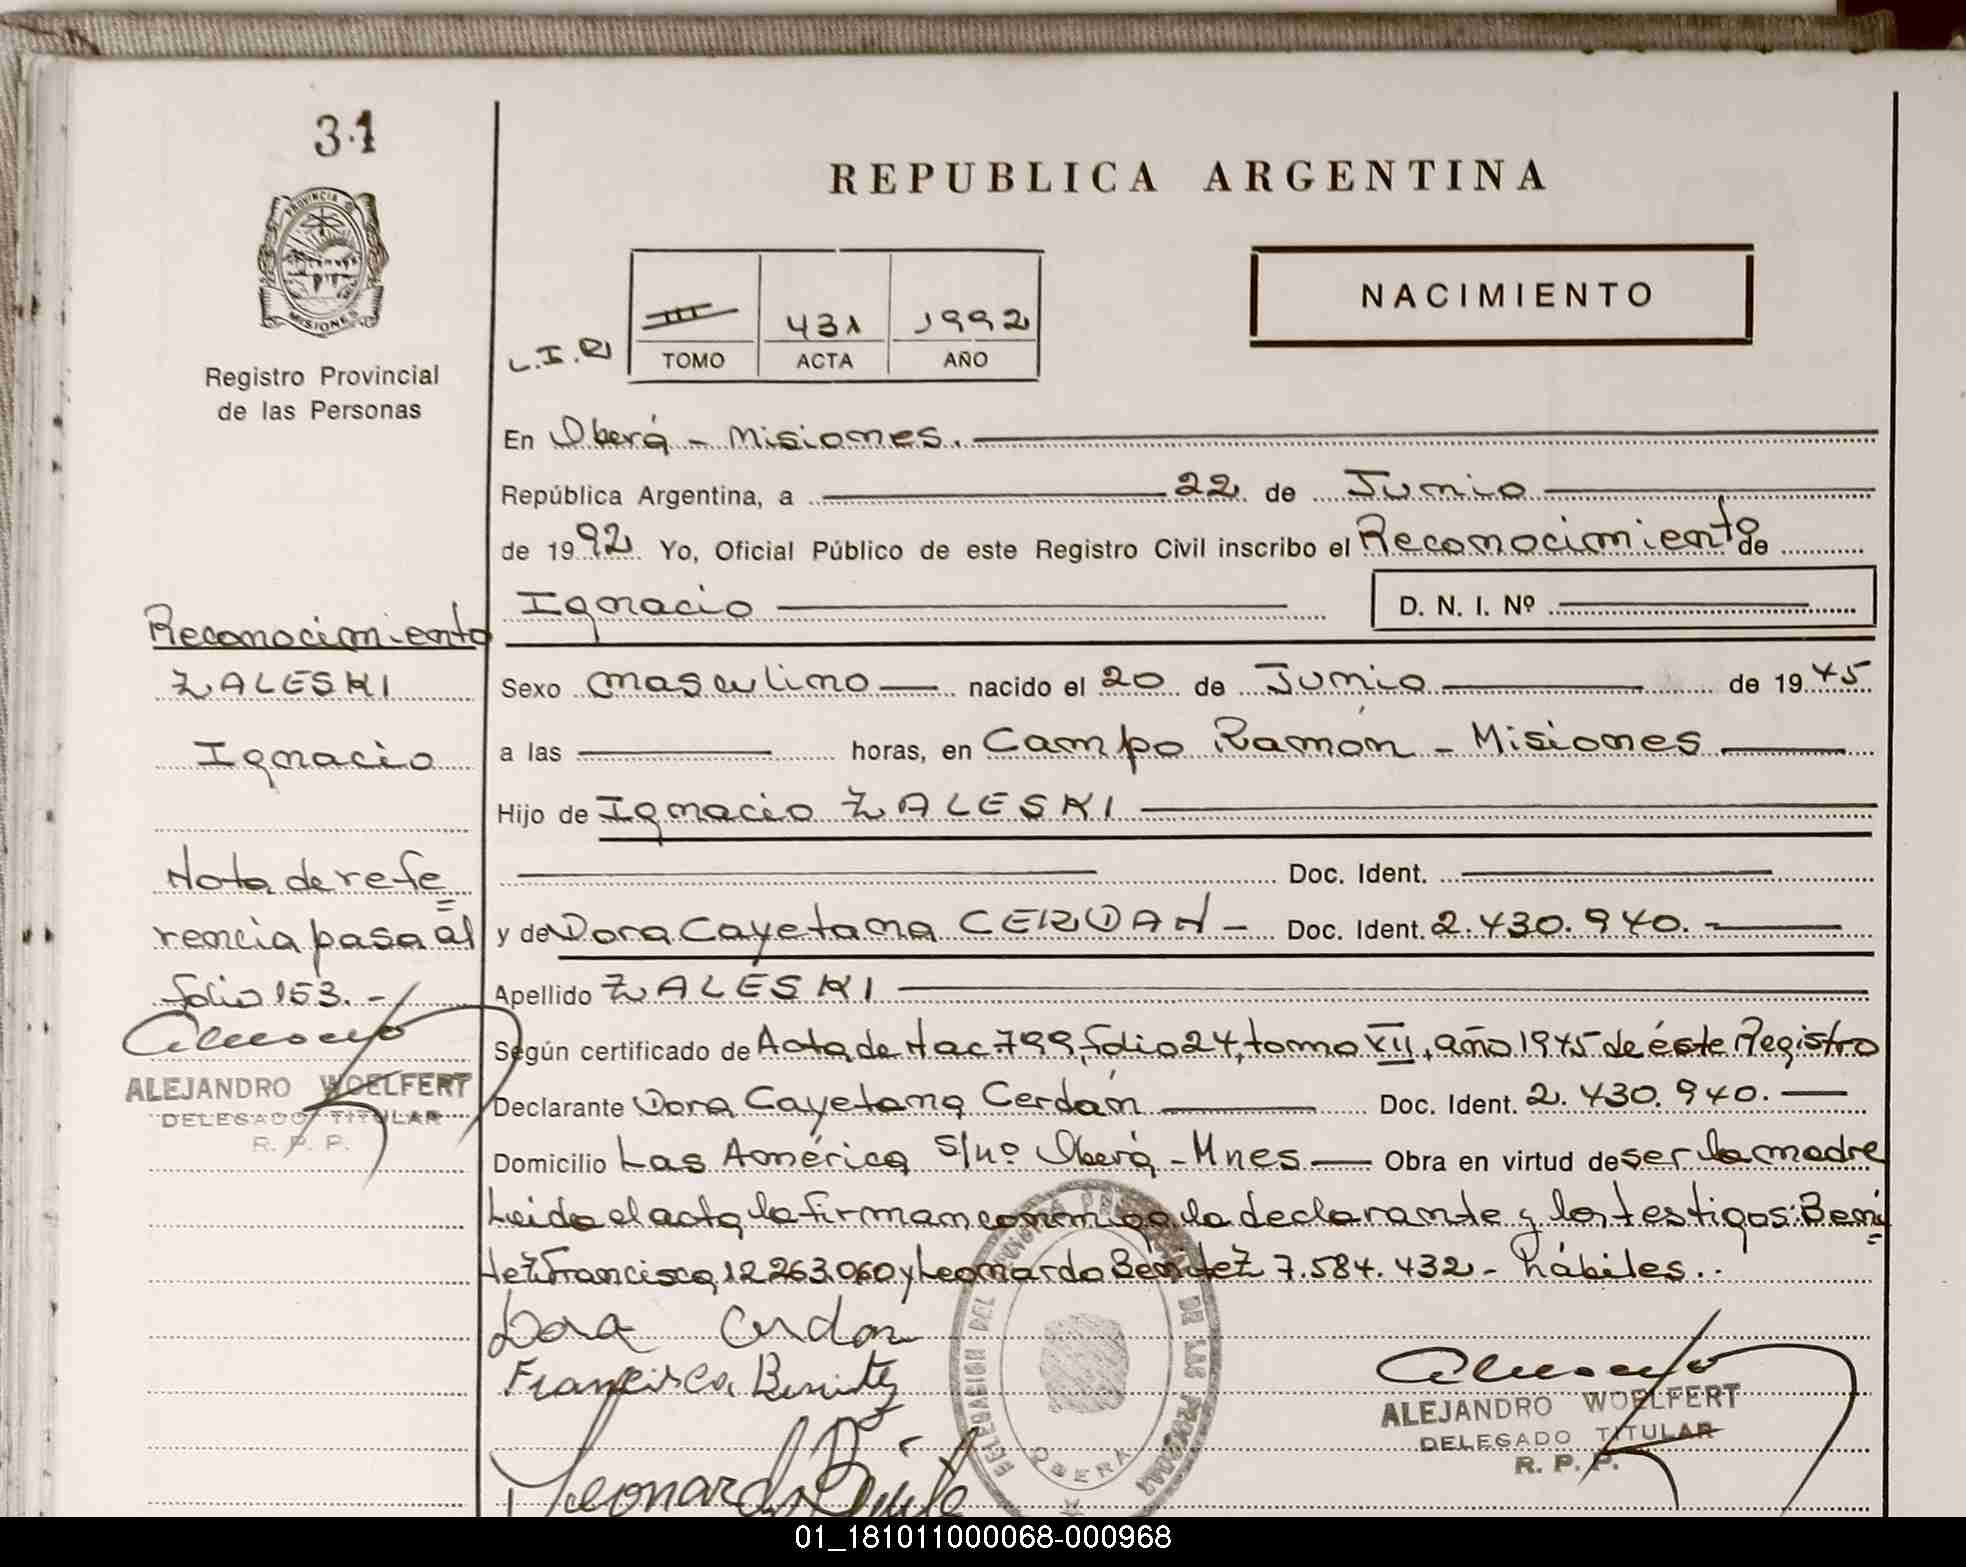 31
REPUBLICA ARGENTINA
PROVINCIA DE
MISIONES
Registro Provincial
de las Personas
NACIMIENTO
L.I.R
III 431 1992
TOMO ACTA AÑO
En Oberá - Misiones.
República Argentina, a 22 de Junio
de 1992 Yo, Oficial Público de este Registro Civil inscribo el Reconocimiento de
Ignacio D. N. I. Nº
Reconocimiento
ZALESKI
Ignacio
Sexo masculino nacido el 20 de Junio de 1945
a las horas, en Campo Ramón - Misiones
Hijo de Ignacio ZALESKI
Doc. Ident.
y de Dora Cayetana CERDAN - Doc. Ident. 2.430.940.
Apellido ZALESKI
Nota de refe
rencia pasa al
folio 153. -
ALEJANDRO WOELFERT
DELEGADO TITULAR
R. P. P.
Según certificado de Acta de Nac. 799, folio 24, tomo XII, año 1945 de éste Registro
Declarante Dora Cayetana Cerdán Doc. Ident. 2.430.940.
Domicilio Las América s/nº Oberá - Mnes Obra en virtud de ser la madre
Leida el acta la firman conmigo la declarante y los testigos: Beni
tez Francisca 12.263.060 y Leonardo Benitez 7.584.432 - hábiles..
Dora Cerdan
Francisca Benitez
Leonardo
DELEGACION DEL REGISTRO PROVINCIAL DE LAS PERSONAS
OBERA
ALEJANDRO WOELFERT
DELEGADO TITULAR
R. P. P.
01_181011000068-000968